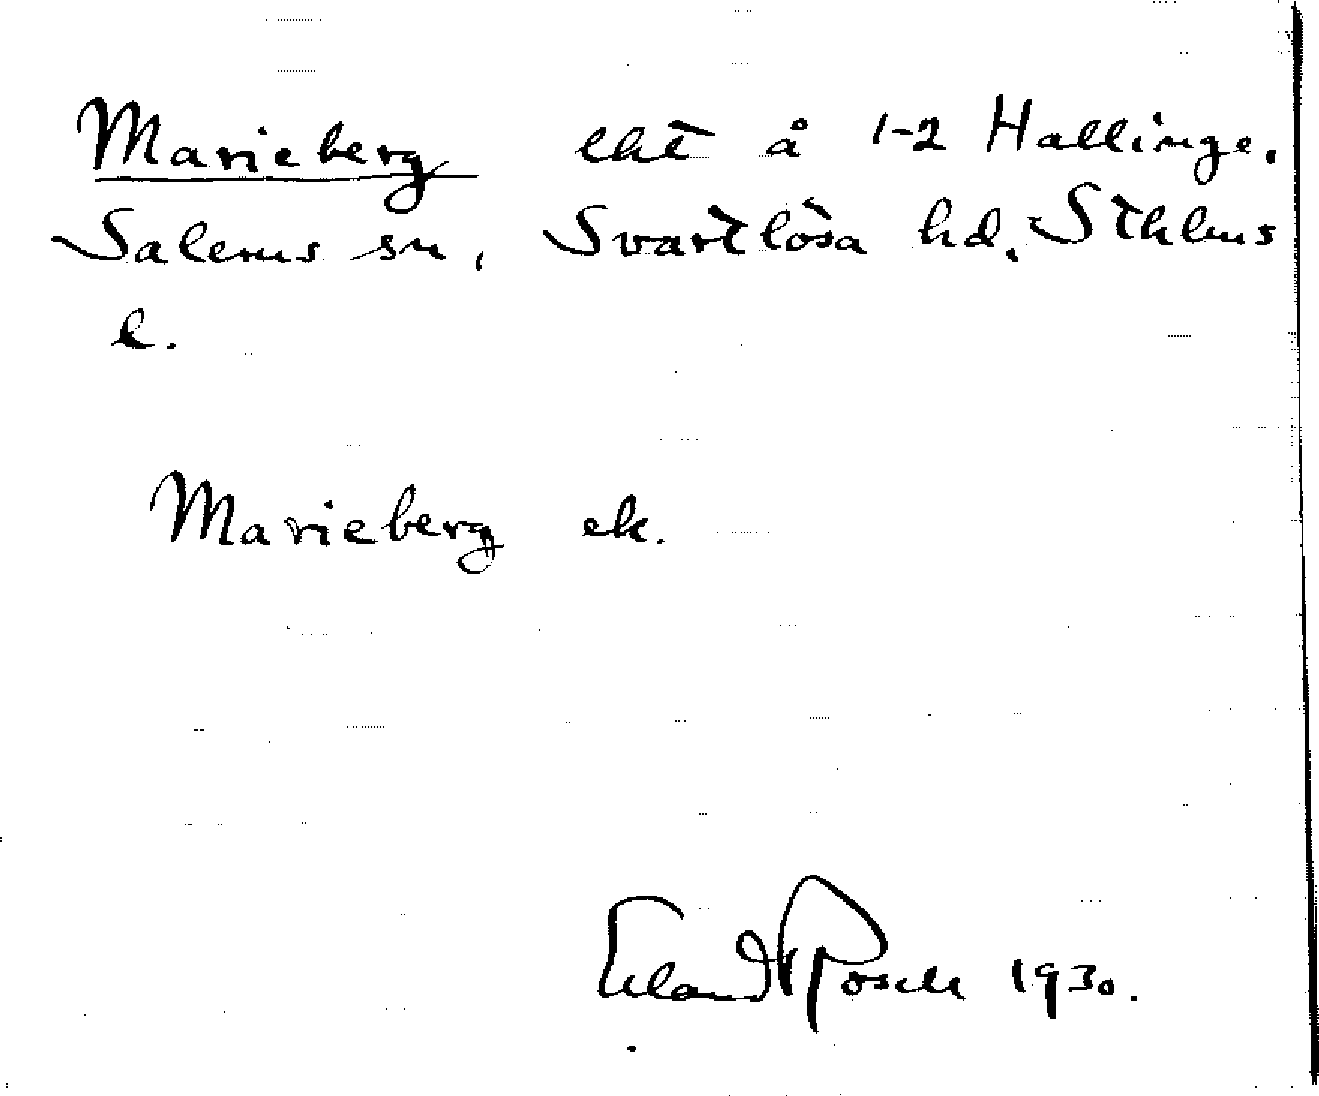 Marieberg lht å 1-2 Hallinge.
Salems sn, Svartlösa hd. Sthlms
l.
Marieberg ek.
Erland Rosell 1930.